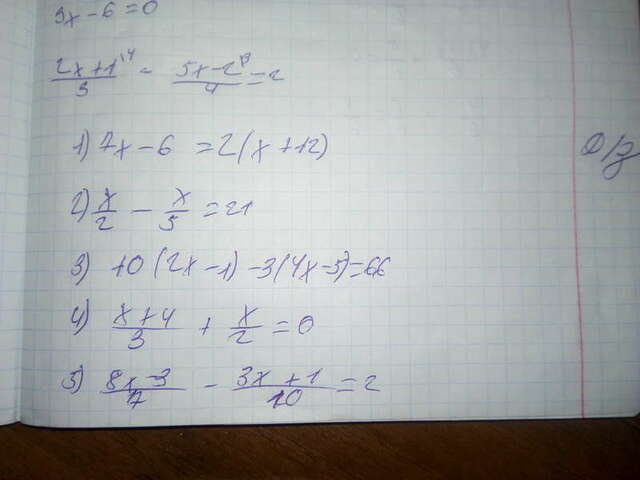 9x - 6 = 0
(2x + 1)/3 - (5x - 2)/4 = 2
1) 7x - 6 = 2(x + 12)
Д/з
2) x/2 - x/5 = 21
3) 10(2x - 1) - 3(4x - 5) = 66
4) (x + 4)/3 + x/2 = 0
5) (8x - 3)/7 - (3x + 1)/10 = 2